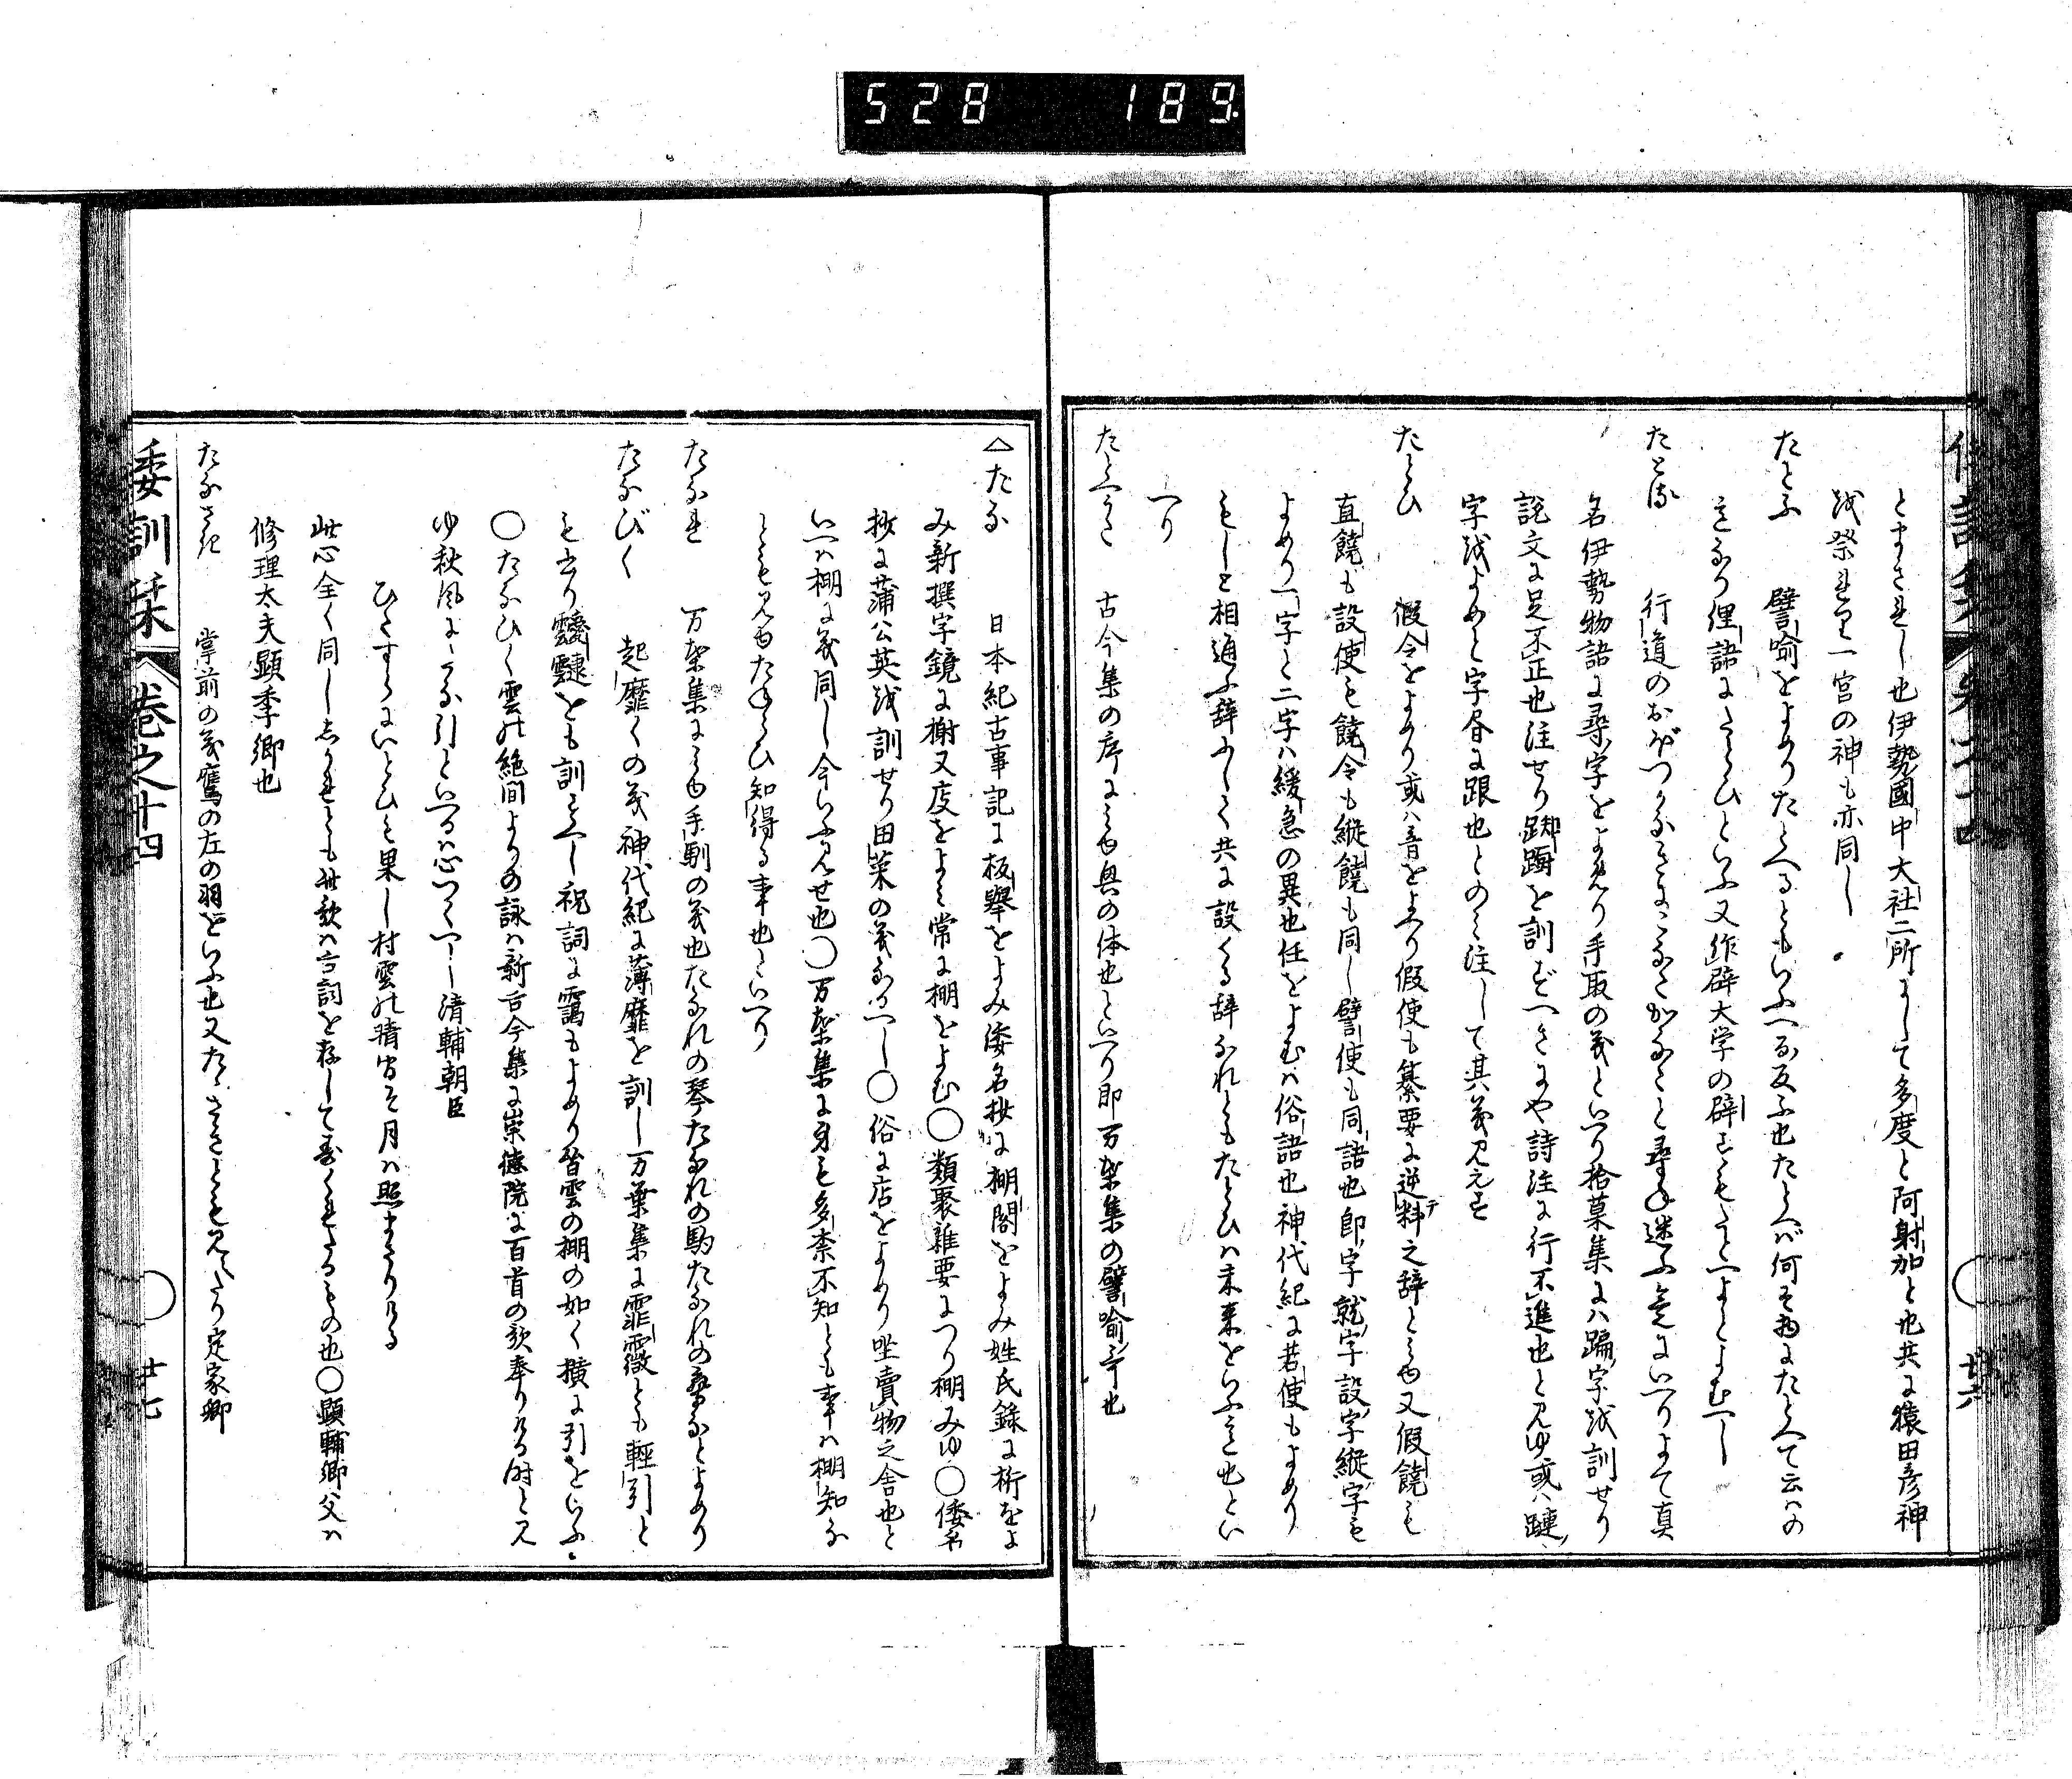 528 189
とまされし也伊勢國中大社二所にして多度と阿射加と也共に猿田彦神
を祭れり一宮の神も亦同し
たとふ 譬喩をよめりたとへるともいふへる反ふ也たとへば何そ物にたとへて云はの
意なり俚語にたとひといふ又作辟大学の辟
たとる 行道のおぼつかなき 尋ね迷ふ意にいへりよて真
名伊勢物語に尋字をよめり手取の義といへり拾菓集には蹁字を訓せり
説文に足不正也注せり踟蹰を訓ずへきにや詩注に行不進也と見ゆ或ハ蹥
字をよめと字書に踉也とのみ注して其義見えす
たとひ 假令をよめり或ハ音をよへり假使も纂要に逆料之辞とみゆ又假饒も
直饒も設使も饒令も縦饒も同し譬使も同語也即字就字設字縦字も
よめり一字と二字ハ緩急の異也任をよむハ俗語也神代紀に若使もよめり
もしと相通ふ辞にして共に設くる辞なれともたとひハ未来をいふ意也とい
へり
たとへうた 古今集の序にみゆ興の体也といへり即万葉集の譬喩哥也
△たな 日本紀古事記に板擧をよみ倭名抄に棚閣をよみ姓氏録に桁をよ
み新撰字鏡に榭又庋をよみ常に棚をよむ〇類聚雑要につり棚みゆ〇倭名
抄に蒲公英を訓せり田菜の義なるへし〇俗に店をよめり坐賣物之舎也と
いへハ棚に義同し今いふ見せ也〇万葉集に身も多奈不知とも事ハ棚知な
ともみゆたねらひ知得る事也といへり
たなれ 万葉集にみゆ手馴の義也たなれの琴たなれの駒たなれの 
なとよめり
たなびく 起靡くの義神代紀に薄靡を訓し万葉集に霏霺とも輕引と
も書り靉靆とも訓すへし祝詞に靄もよめり昔雲の棚の如く横に引をいふ
〇たなひく雲の絶間よりの詠ハ新古今集に崇徳院に百首の歌奉りける時と見
ゆ秋風にたな引といへるハ心つくへし清輔朝臣
ひくすゑにいとひも果し村雲の晴間そ月ハ照まさりける
此心全く同ししかれとも此歌ハ言詞を
修理太夫顕季卿也
たなさき 掌前の義鷹の左の羽をいふ也又たゝさきとも見えたり定家卿
倭訓栞 卷之十四 廿七
廿六